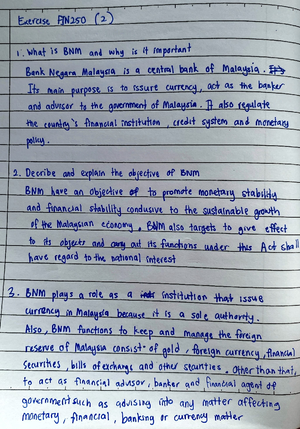 Exercise FIN250 (2)
1. What is BNM and why is it important
Bank Negara Malaysia is a central bank of Malaysia.
Its main purpose is to issure currency, act as the banker
and advisor to the government of Malaysia. It also regulate
the country's financial institution, credit system and monetary
policy.
2. Decribe and explain the objective of BNM
BNM have an objective of to promote monetary stability
and financial stability condusive to the sustainable growth
of the Malaysian economy, BNM also targets to give effect
to its objects and carry out its functions under this Act shall
have regard to the national interest
3. BNM plays a role as a institution that issue
currency in Malaysia because it is a sole authority.
Also, BNM functions to keep and manage the foreign
reserve of Malaysia consist of gold, foreign currency, financial
securities, bills of exchange and other securities. Other than that,
to act as financial advisor, banker and financial agent of
government such as advising into any matter affecting
monetary, financial, banking or currency matter